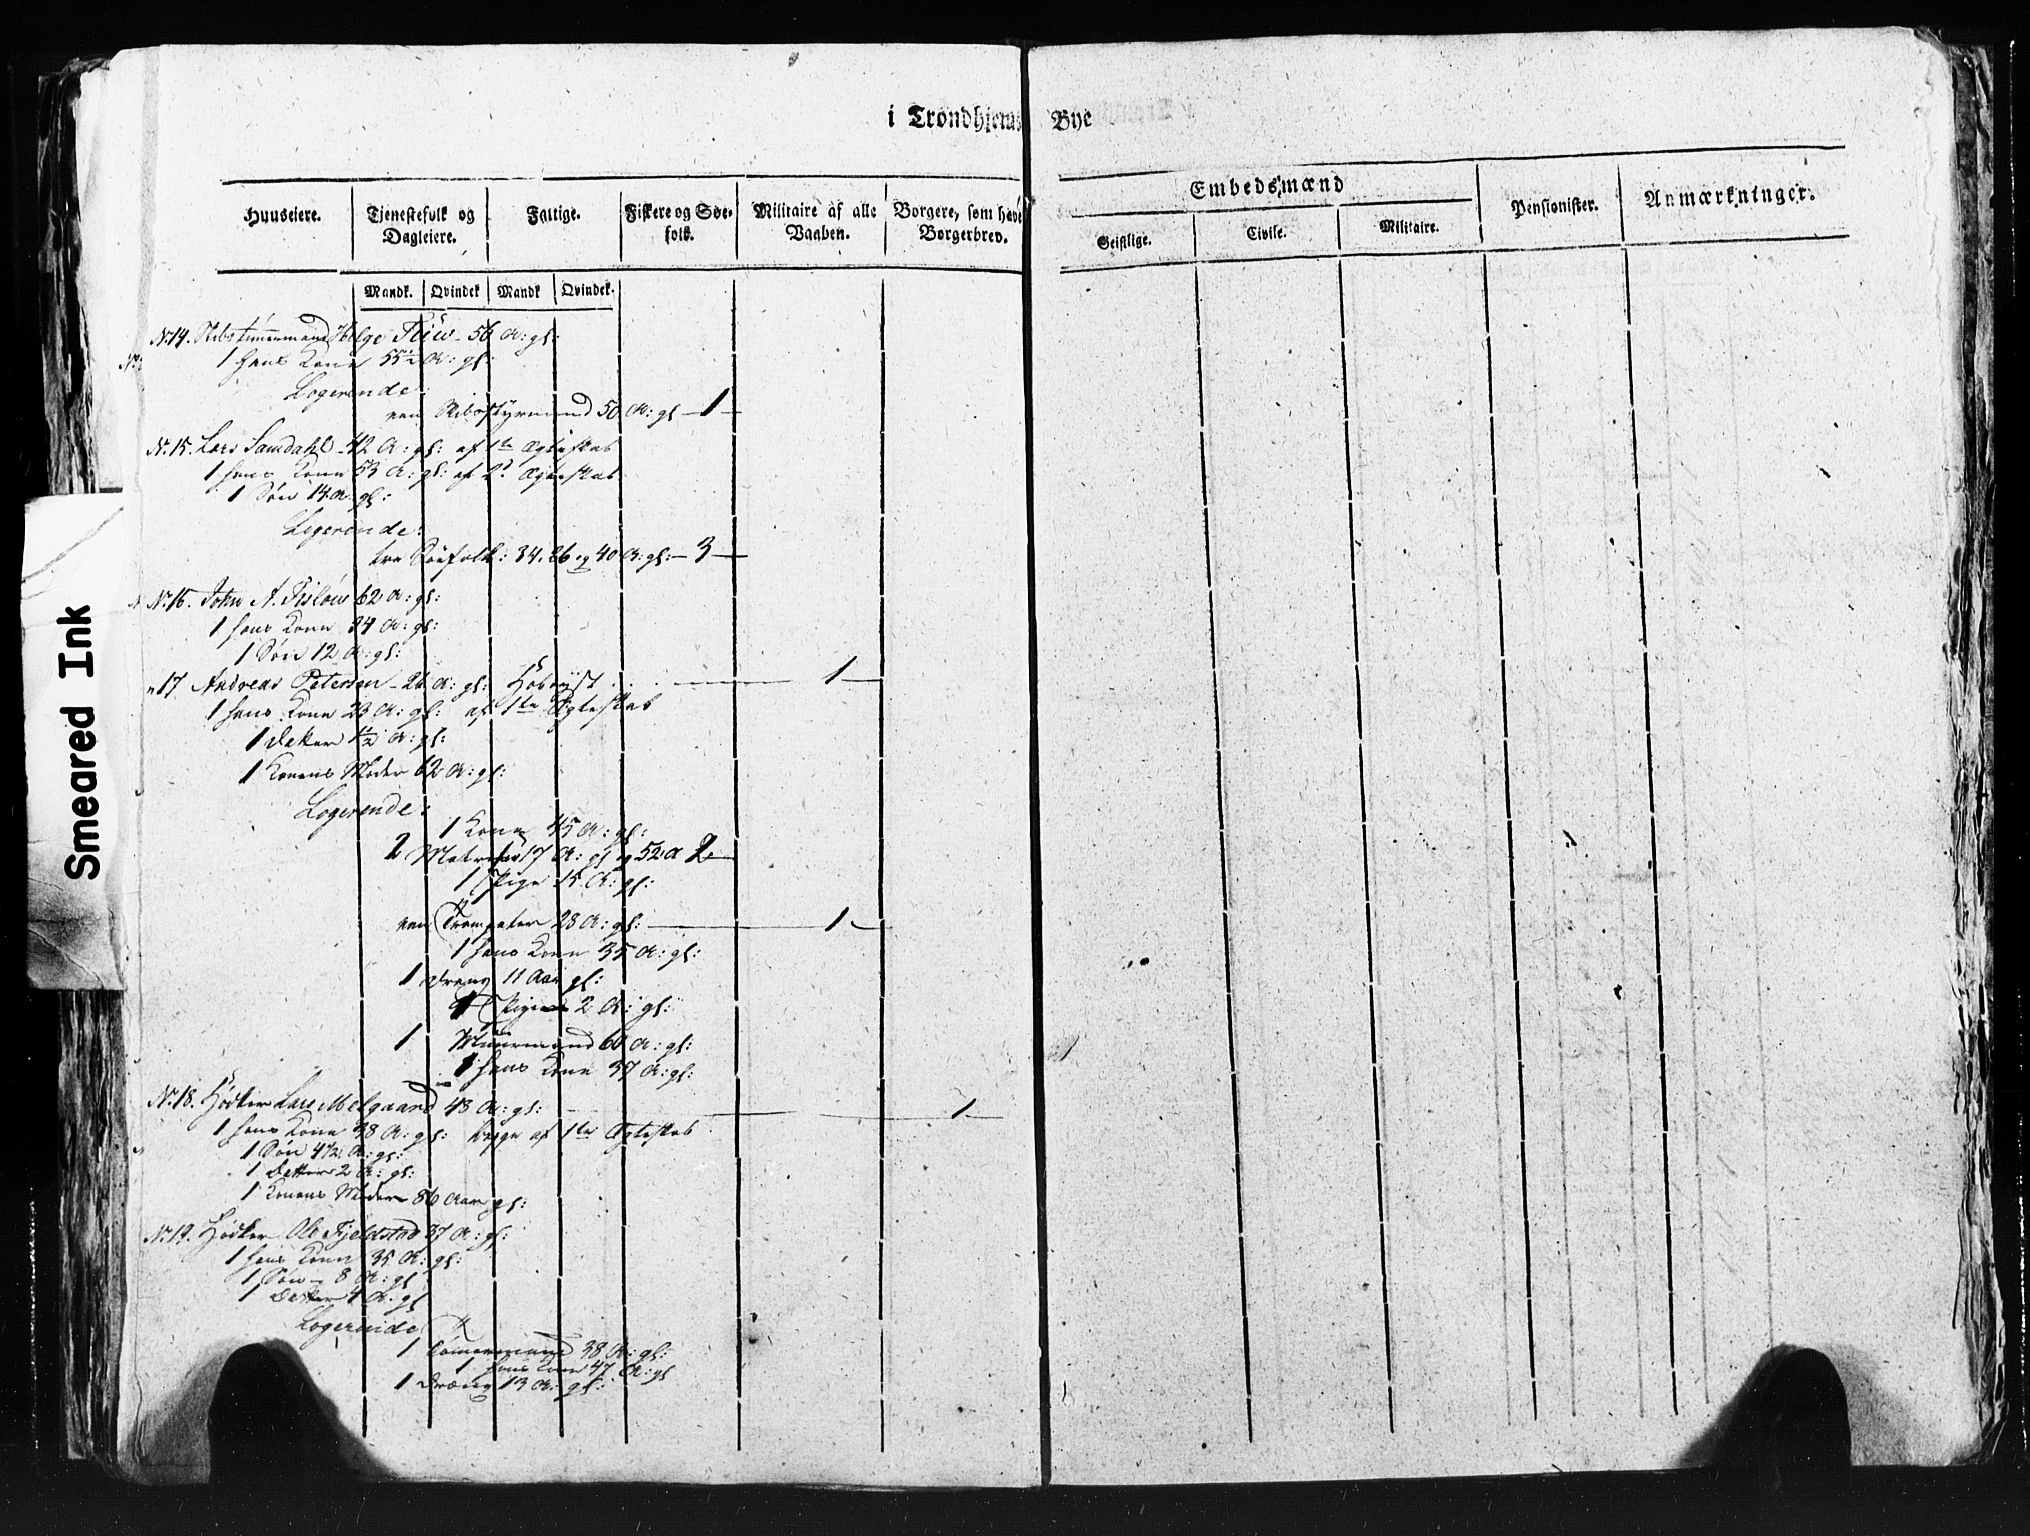 i Trondhjems Bye
Huuseiere.
Tjenestefolk og Dagleiere.
Fattige.
Fiskere og Søe-folk.
Militaire af alle Vaaben.
Borgere, som have Borgerbrev.
Embedsmænd
Geistlige.
Civile.
Militaire.
Pensionister.
Anmærkninger.
Mandk. Qvindek Mandk Qvindek.
No 14. Skibstømmermand Helge 56 A: gl:
1 hans Kone 55½ A: gl:
Logerende:
een Skibsstyrmand 50 A: gl — 1 —
No 15. Lars Samdahl - 42 A: gl: af 1te Ægteskab
1 hans Kone 53 A: gl: af 2t Ægteskab
1 Søn 14 A: gl:
Logerende:
tre Søefolk: 34. 26 og 40 A: gl: — 3 —
No 16. John A. 62 A: gl:
1 hans Kone 34 A: gl:
1 Søn 12 A: gl:
" 17 Andreas Petersen - 26 A: gl: Hoboist — 1 —
1 hans Kone 23 A: gl: af 1te Ægteskab
1 Datter 1½ A: gl:
1 Konens Moder 62 A: gl:
Logerende:
1 Kone 45 A: gl:
2 Matroser 17 A: gl og 52 A 2 —
1 Pige 15 A: gl:
een Trompeter 28 A: gl: — 1 —
1 hans Kone 35 A: gl:
1 Dreng 11 Aar gl:
1 Pige 2 A: gl:
1 Muurmand 60 A: gl:
1 hans Kone 37 A: gl:
No 18. Høcker Lars Melgaard 48 A: gl: — 1 —
1 hans Kone 38 A: gl: begge af 1te Ægteskab
1 Søn 4½ A: gl:
1 Datter 2 A: gl:
1 Konens Moder 86 Aar gl:
No 19. Høcker Ole Fjeldstad 37 A: gl:
1 hans Kone 35 A: gl:
1 Søn - 8 A: gl
1 Datter 4 A: gl
Logerende
1 Tømmermand 38 A: gl:
1 hans Kone 47 A: gl
1 Dreng 13 A: gl:
Smeared Ink